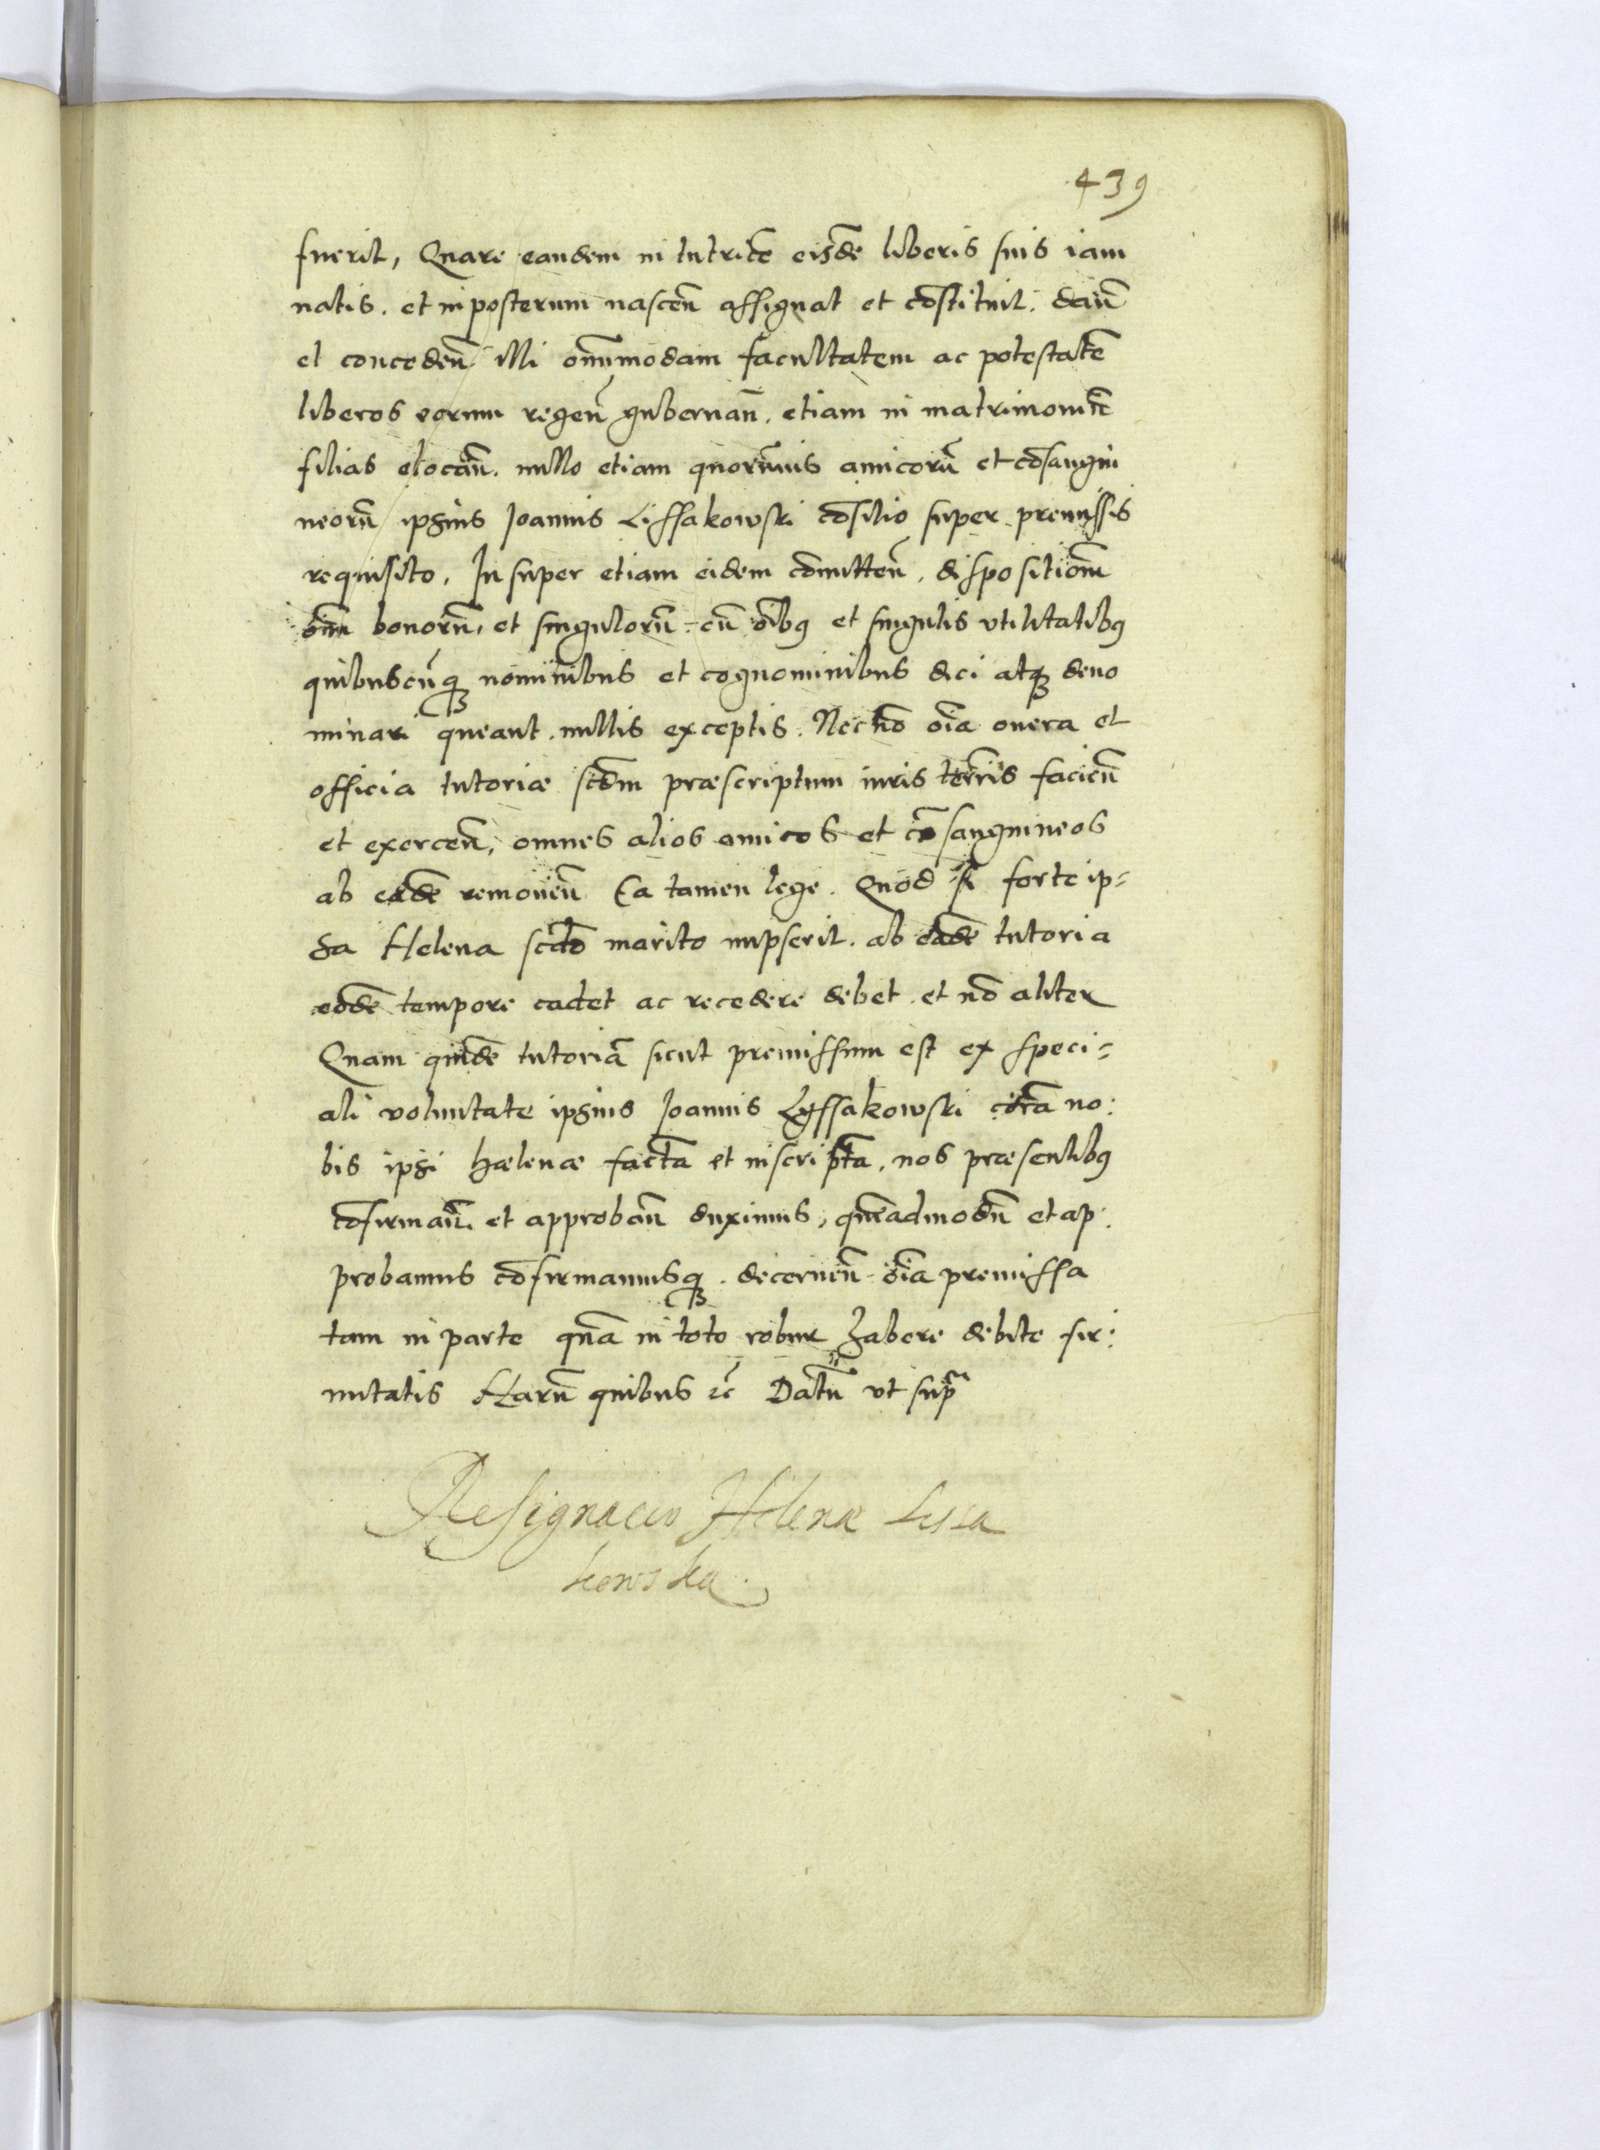 439
fuerit, Quare eandem in tutricē eisdē liberis suis iam
natis. et in posterum nascen̄ assignat et cōstituit. dan̄
et conceden̄ illi omnimodam facultatem ac potestatē
liberos eorum regen̄ gubernan̄. etiam in matrimoniū
filias elocan̄. nullo etiam quorūuis amicorū et cōsangui
neorū ipsius Joannis Lissakowski cōsilio super premissis
requisito. Insuper etiam eidem cōmitten̄. dispositionē
oīm bonorū, et singulorū cū oībus et singulis vtilitatibus
quibuscūq nominibus et cognominibus dici atq deno
minari queant. nullis exceptis. Necnō oīa onera et
officia tutoriæ scdm præscriptum iuris terrīs facien̄
et exercen̄, omnes alios amicos et cōsanguineos
ab eadē remouen̄ Ea tamen lege. Quod si forte ip=
sa Helena scdo marito nupserit. ab eadē tutoria
eodē tempore cadet ac recedere debet. et nō aliter
Quam quidē tutoriā sicut premissum est ex speci=
ali voluntate ipsius Joannis Lyssakowski corā no:
bis ipsi Hælenæ factā et inscriptā. nos præsentibus
cōfirman̄. et approban̄ duximus, quēadmodū et ap:
probamus cōfirmamusq. decernen̄ oīa premissa
tam in parte quā in toto robur habere debite fir:
mitatis Harū quibus rc̄ Datū vt supra
Resignacio Helenæ Lissa
kowska.